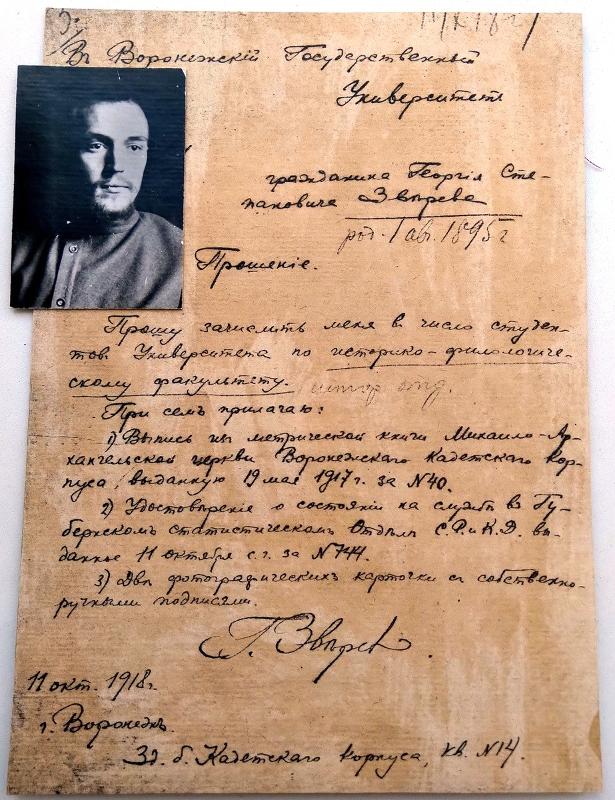 Въ Воронежскій Государственный
Университетъ
гражданина Георгія Сте-
пановича Звѣрева
род. 1 авг. 1895 г
Прошеніе.
Прошу зачислить меня в число студен-
тов Университета по историко-филологиче-
скому факультету. истор отд.
При семъ прилагаю:
1) Выпись из метрической книги Михаило-Ар-
хангельской церкви Воронежского Кадетскаго Кор-
пуса, выданную 19 мая 1917 г. за №40.
2) Удостовѣреніе о состояніи на службѣ въ Гу-
бернскомъ статистическомъ Отдѣлѣ С.Р. и К.Д. вы-
данное 11 октября с.г. за №744.
3) Двѣ фотографическихъ карточки съ собственно-
ручными подписями.
Г. Звѣрев.
11 окт. 1918 г.
г. Воронежъ.
Зд. б. Кадетскаго Корпуса, кв. №14.